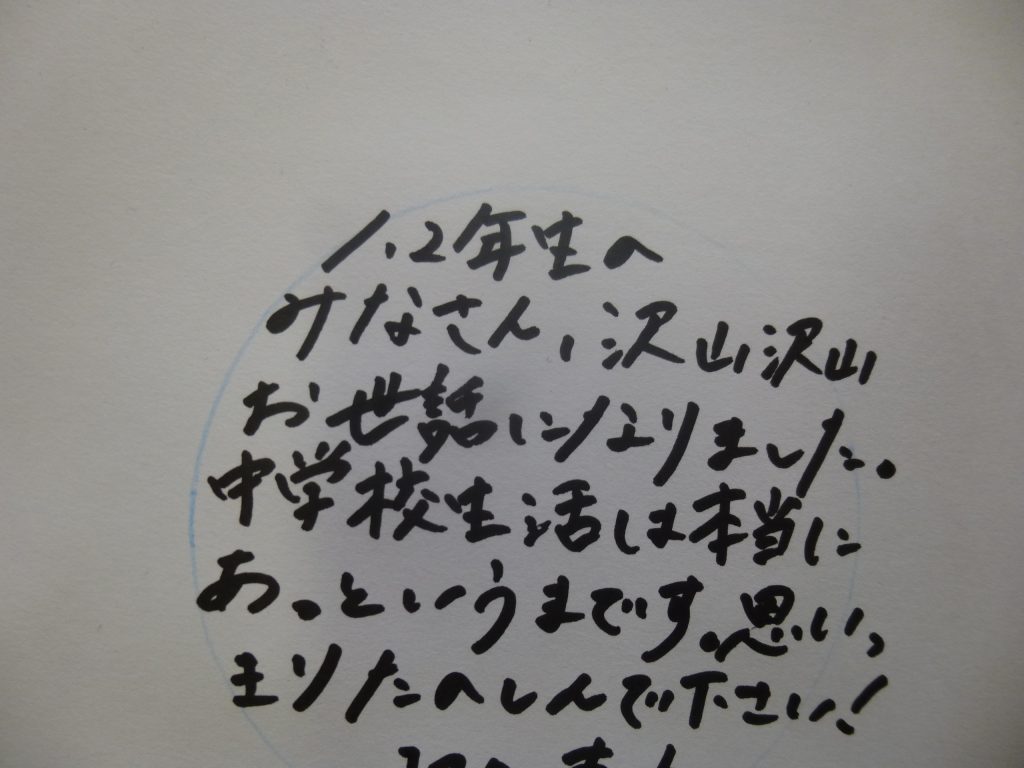 1.2年生の
みなさん、沢山沢山
お世話になりました。
中学校生活は本当に
あっというまです。思いっ
きりたのしんで下さい!